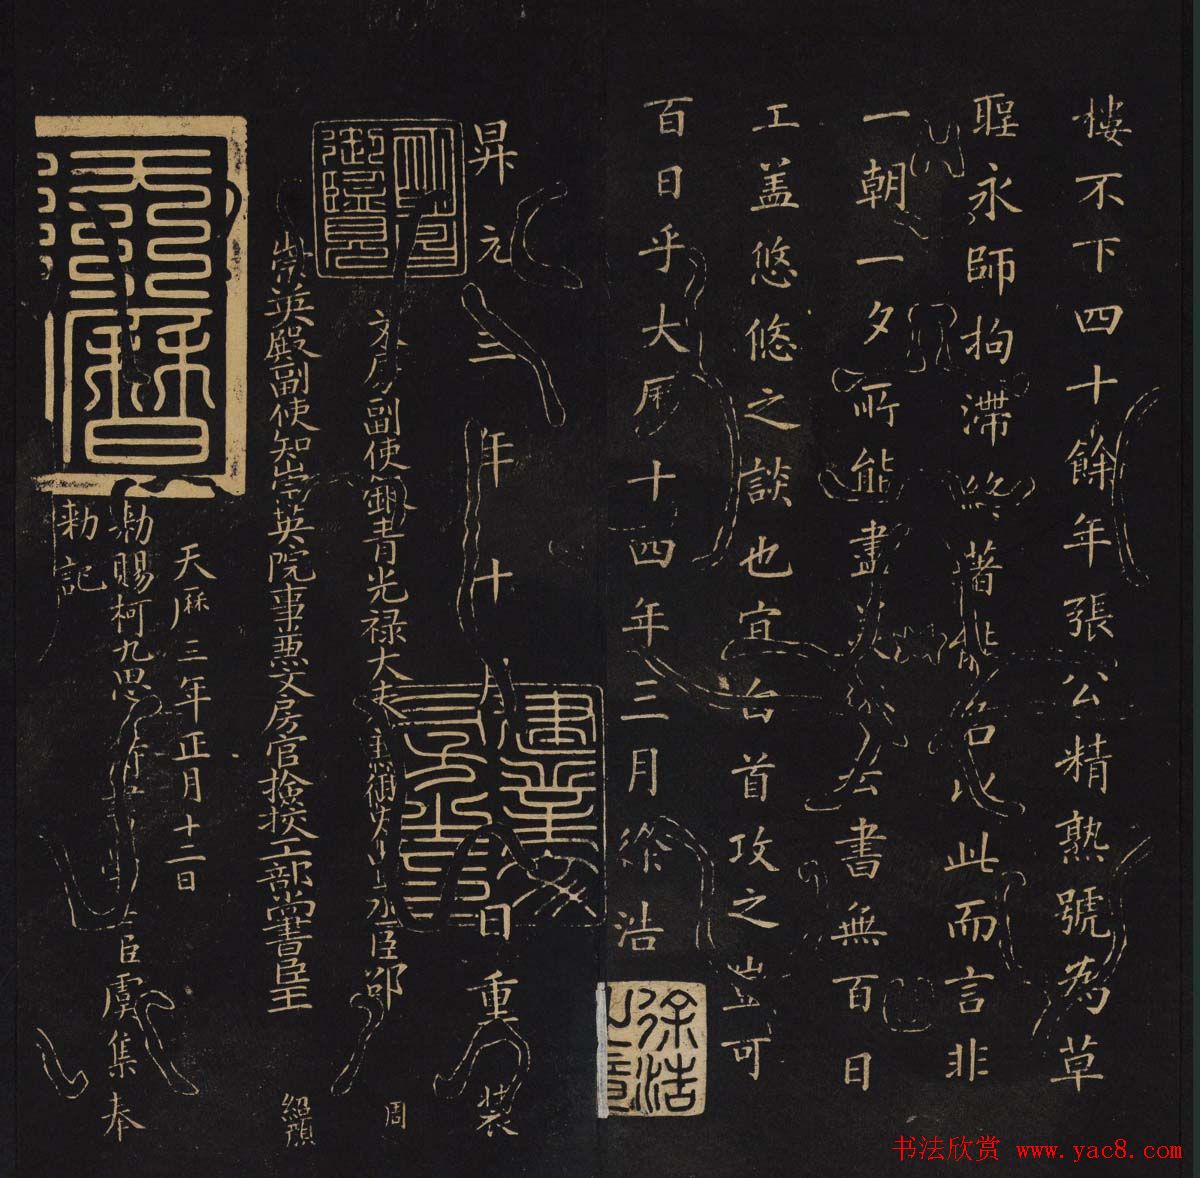 樓不下四十餘年張公精熟號為草
聖永師拘滯終著能名以此而言非
一朝一夕所能盡美俗云書無百日
工蓋悠悠之談也宜白首攻之豈可
百日乎大曆十四年三月 浩
徐浩
昇元三年十月 日重裝
建業文房之印
文房副使銀青光祿大夫兼御史中丞臣邵 周
崇英殿副使知崇英院事兼文房官檢校工部尚書臣王 紹顏
天曆
天曆三年正月十二日
勑賜柯九思 臣虞集奉
勑記
书法欣赏 www.yac8.com